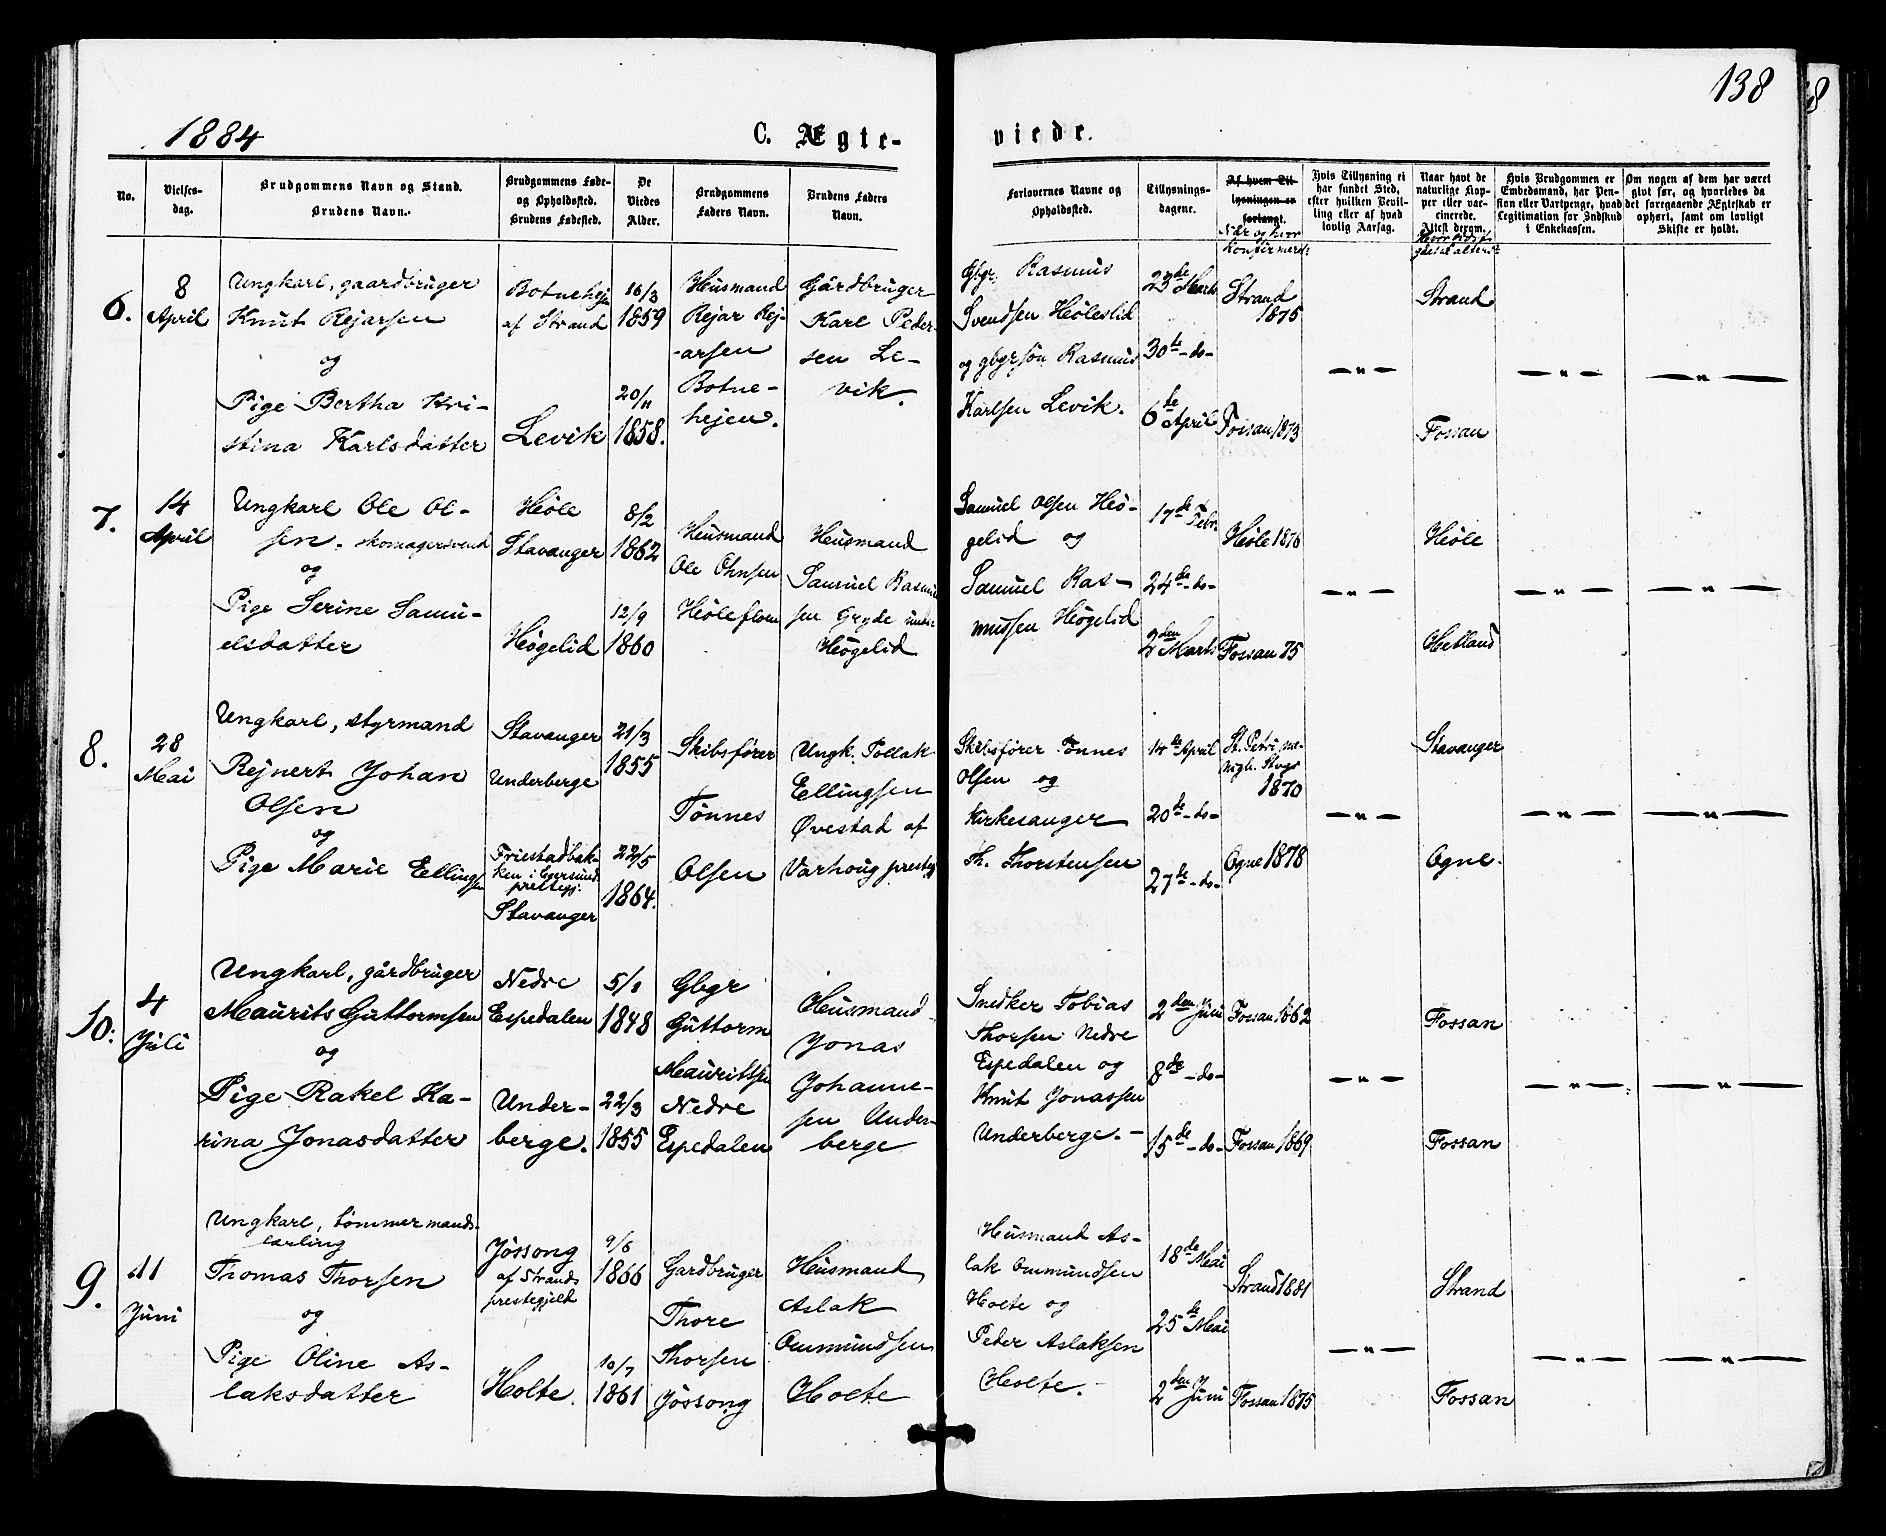 138
1884
C. Ægte-
viede.
No.
Vielses-
dag.
Brudgommens Navn og Stand.
Brudens Navn.
Brudgommens Føde-
og Opholdssted.
Brudens Fødested.
De
Viedes
Alder.
Brudgommens
Faders Navn.
Brudens Faders
Navn.
Forlovernes Navne og
Opholdssted.
Tillysnings-
dagene.
Af hvem Til-
lysningen er
forlangt.
Når og hvor
konfirmerede
Hvis Tillysning ei
har fundet Sted,
efter hvilken Bevil-
ling eller af hvad
lovlig Aarsag.
Naar havt de
naturlige Kop-
per eller vac-
cinerede.
Attest derom.
Hvis Brudgommen er
Embedsmand, har Pen-
sion eller Vartpenge, hvad
Legitimation for Indskud
i Enkekassen.
Om nogen af dem har været
givt før, og hvorledes da
det foregaaende Ægteskab er
ophørt, samt om lovligt
Skifte er holdt.
6.
8
April
Ungkarl, gaardbruger
Knut Rejarsen
og
Pige Bertha Kri-
stina Karlsdatter
Botnehejen
af Strand
Levik
16/3
1859
20/11
1858.
Husmand
Rejar Rej-
-arsen
Botne-
hejen.
Gårdbruger
Karl Peder-
sen Le-
vik.
Gbgr. Rasmus
Svendsen Høleslid
og gbgrsøn Rasmus
Karlsen Levik.
23de Marts
30te -do-
6te April
Strand
1875
Fossan 1873
— " —
Strand
Fossan
— " —
— " —
7.
14
April
Ungkarl Ole Ol-
sen. skomagersvend
og
Pige Serine Samu-
elsdatter
Høle
Stavanger
Høgelid
8/2
1862
12/9
1860
Husmand
Ole Ohnsen
Høleflom
Husmand
Samuel Rasmus
sen Gryde under
Høgelid
Samuel Olsen Hø-
gelid og
Samuel Ras-
mussen Høgelid
17de Febr.
24de -do-
2den Marts
Høle 1876
Fossan 75
— " —
Høle
Hetland
— " —
— " —
8.
28
Mai
Ungkarl, styrmand
Rejnert Johan
Olsen
og
Pige Marie Ellingsen
Stavanger
Underberge
Friestadbak-
ken i Egersund
prestegj:
Stavanger
21/3
1855
22/5
1864.
Skibsfører
Tønnes
Olsen
Ungk. Tollak
Ellingsen
Øvestad af
Varhoug prestegj
Skibsfører Tønnes
Olsen og
Kirkesanger
Th. Thorstensen
14de April
20de -do-
27de -do-
St. Petri me-
nigh. Stvgr
1870
Ogne 1878
— " —
Stavanger
Ogne.
— " —
— " —
10.
4
Juli
Ungkarl, gårdbruger
Maurits Guttormsen
og
Pige Rakel Ka-
rina Jonasdatter
Nedre
Espedalen
Under-
berge.
5/1
1848
22/3
1855
Gbgr
Guttorm
Mauritsen
Nedre
Espedalen
Husmand
Jonas
Johanne-
sen Under-
berge
Snedker Tobias
Thorsen Nedre
Espedalen og
Knut Jonassen
Underberge. -
2den Juni
8de -do-
15de -do-
Fossan 1862
Fossan 1869
— " —
Fossan
Fossan
— " —
— " —
9.
11
Juni
Ungkarl, tømmermands-
lærling
Thomas Thorsen
og
Pige Oline As-
laksdatter
Jøssong
af Strands
prestegjeld
Holte.
9/6
1866
10/7
1861
Gardbruger
Thore
Thorsen
Jøssong
Husmand
Aslak
Ommundsen
Holte
Husmand As-
lak Ommundsen
Holte og
Peder Aslaksen
Holte.
18de Mai
25de Mai
2den Juni
Strand 1881
Fossan 1875
— " —
Strand
Fossan
— " —
— " —